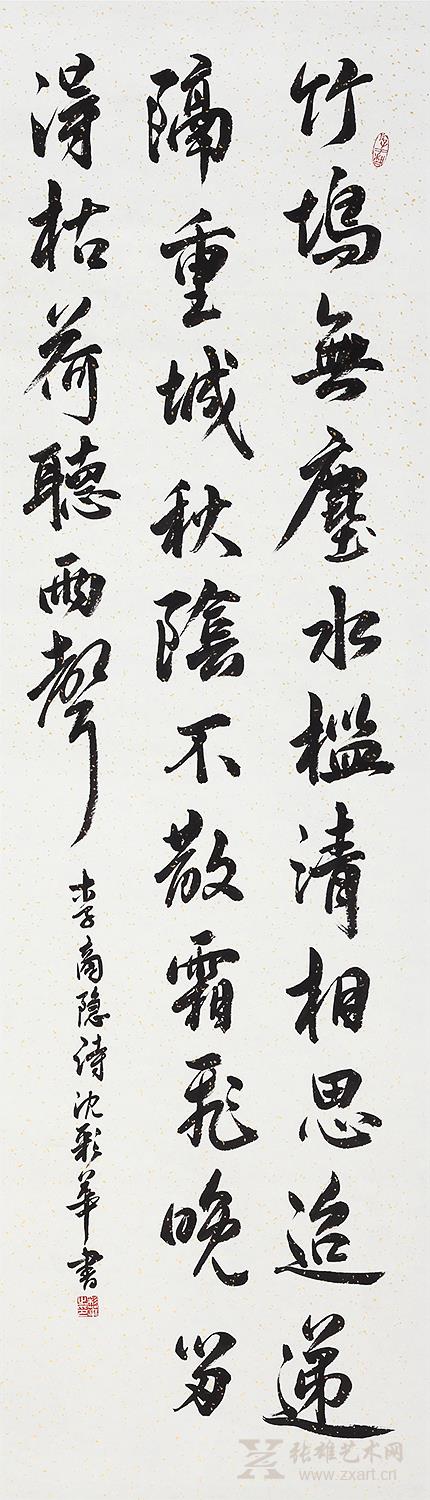 竹塢無塵水檻清相思迢遞
隔重城秋陰不散霜飛晚留
得枯荷聽雨聲
李商隐诗沈彩華书
张雄艺术网
www.zxart.cn